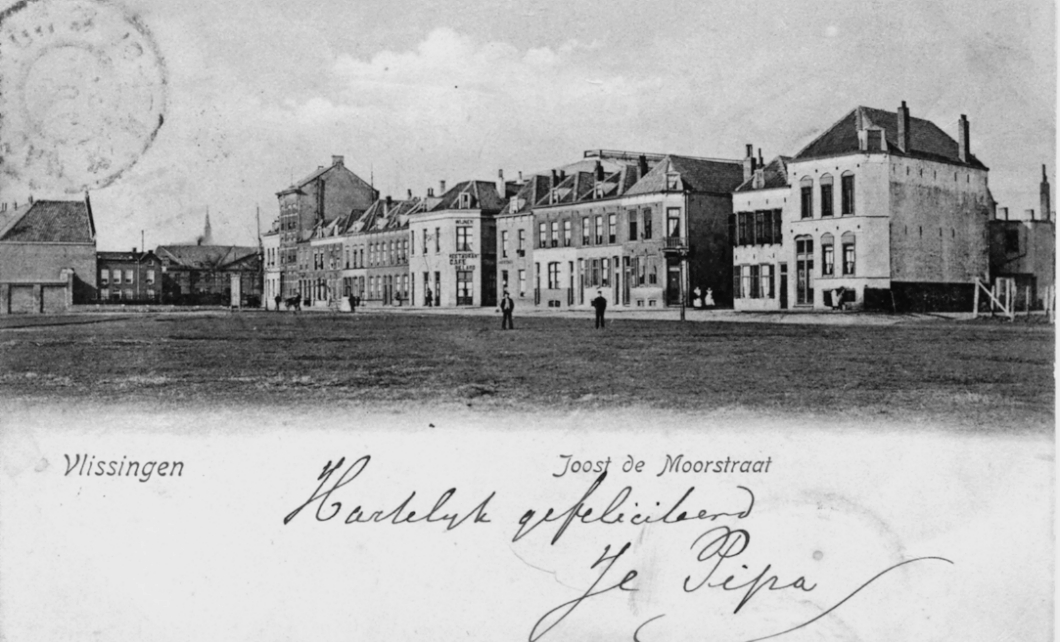 RESTAURANT
CAFE
Vlissingen
Joost de Moorstraat
Hartelyk gefeliciteerd
Je Pipa